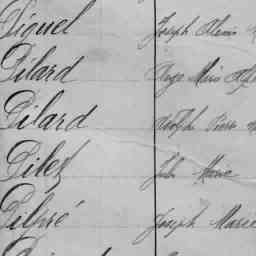 Piquel Joseph Alexis
Pilard Ange Marie
Pilard Adolphe Pierre
Pilet Jules Marie
Pilpré Joseph Marie